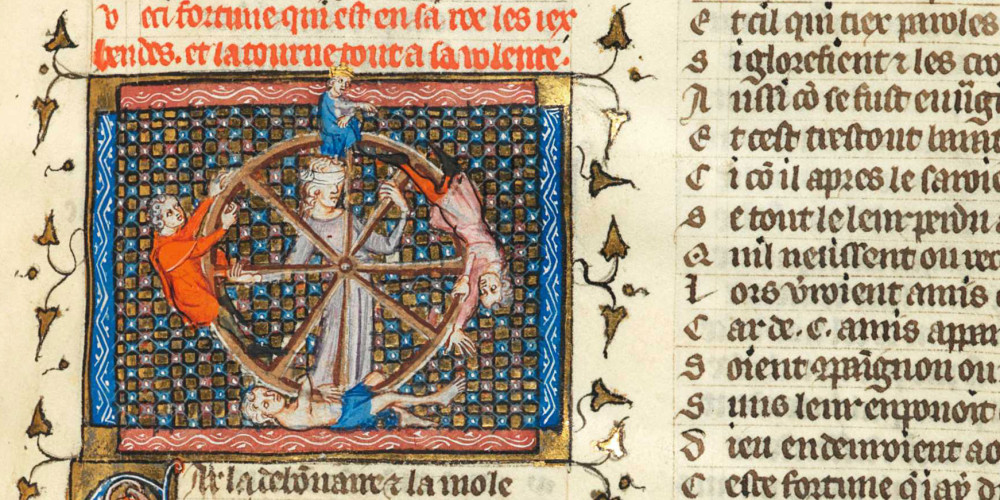 v eci fortune qui est en sa roe les iex
bendes. et la tourne tout a sa volente.
Par la debonaire ⁊ la mole
E t cil qui tiex paroles
S i glorefient ⁊ les
A ussi cō se fust euūg
E t cest trestout
C i cō il apres le sauoie
S e tout le leur perdu
Q uil neussent ou rec
L ors v̄roient amis
C ar de .c. amis appar
S oient 9paignon ou
S uns leur en pouoit
D ieu en deuroient
C este fortune q̄ iay d